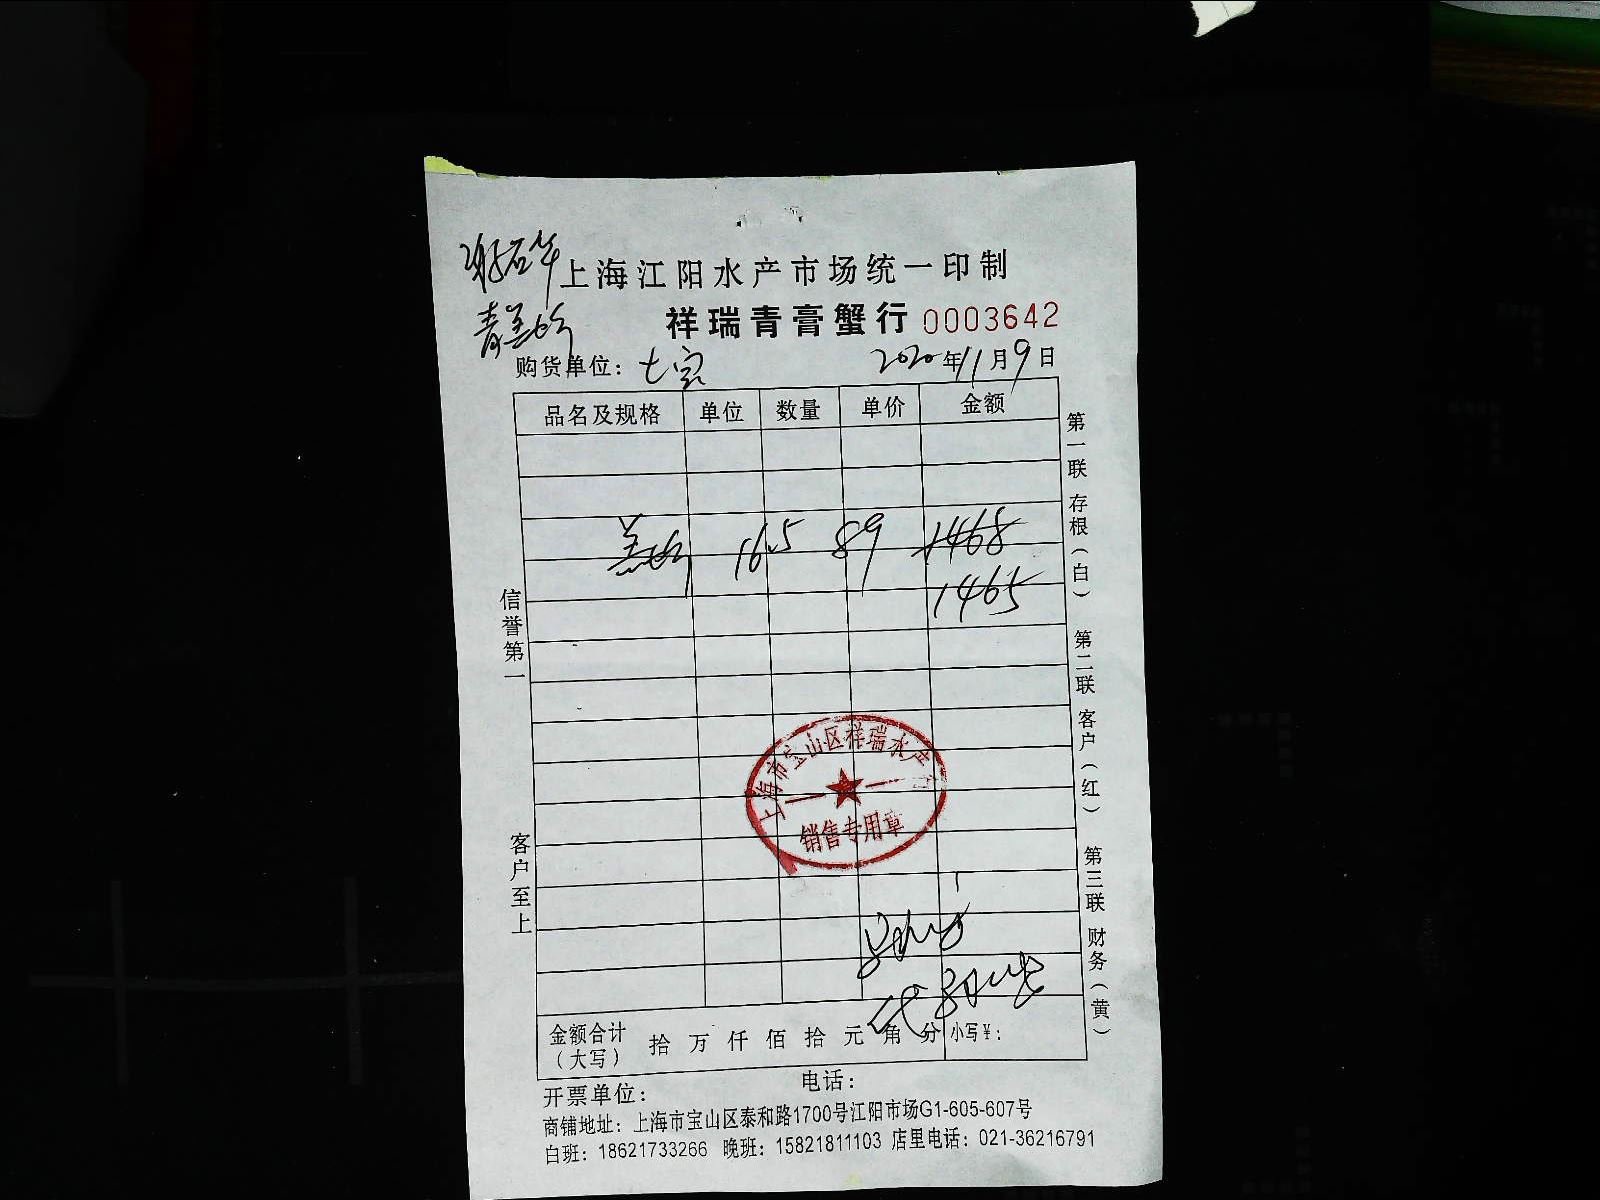 上海江阳水产市场统一印制
祥瑞青膏蟹行 0003642
购货单位：七宝 2020年11月9日
品名及规格 单位 数量 单价 金额
16.5 89 1468
1465
信誉第一
客户至上
第一联 存根（白） 第二联 客户（红） 第三联 财务（黄）
上海市宝山区祥瑞水产
销售专用章
金额合计（大写） 拾 万 仟 佰 拾 元 角 分 小写¥：
开票单位： 电话：
商铺地址：上海市宝山区泰和路1700号江阳市场G1-605-607号
白班：18621733266 晚班：15821811103 店里电话：021-36216791